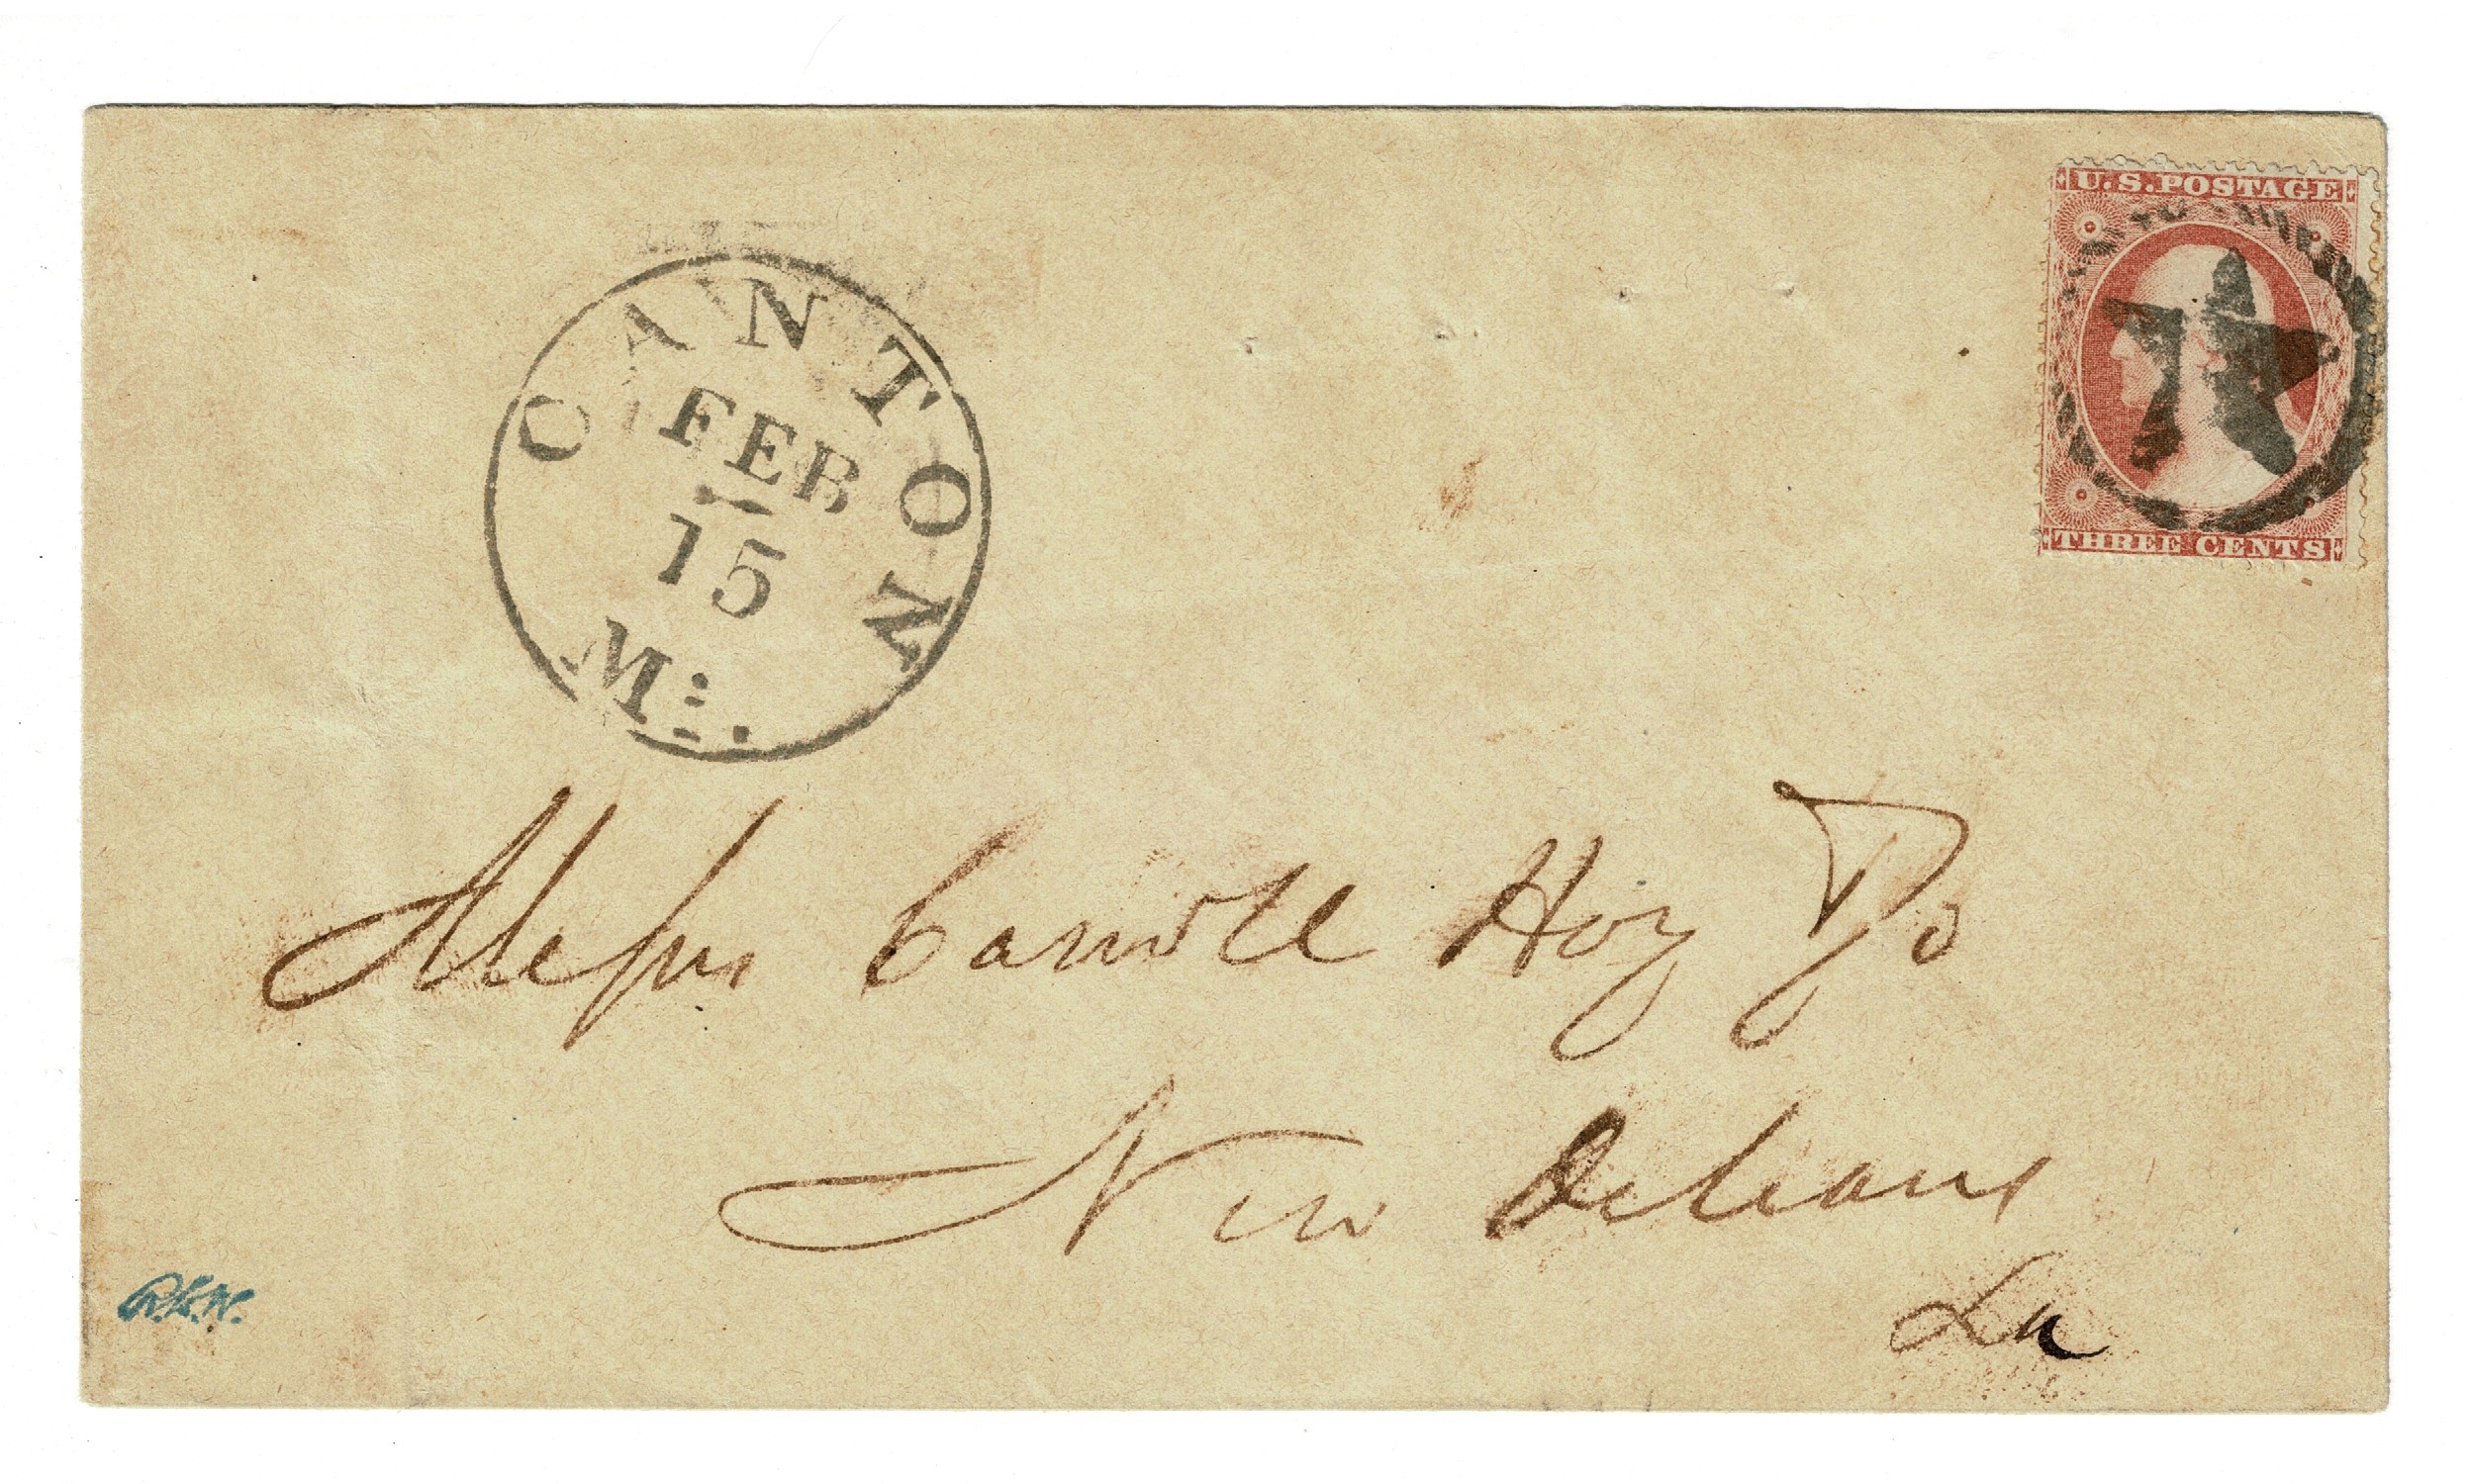 U.S. POSTAGE
CANTON
FEB
15
Mi.
THREE CENTS
Messrs Carroll Hoy & Co
New Orleans
La